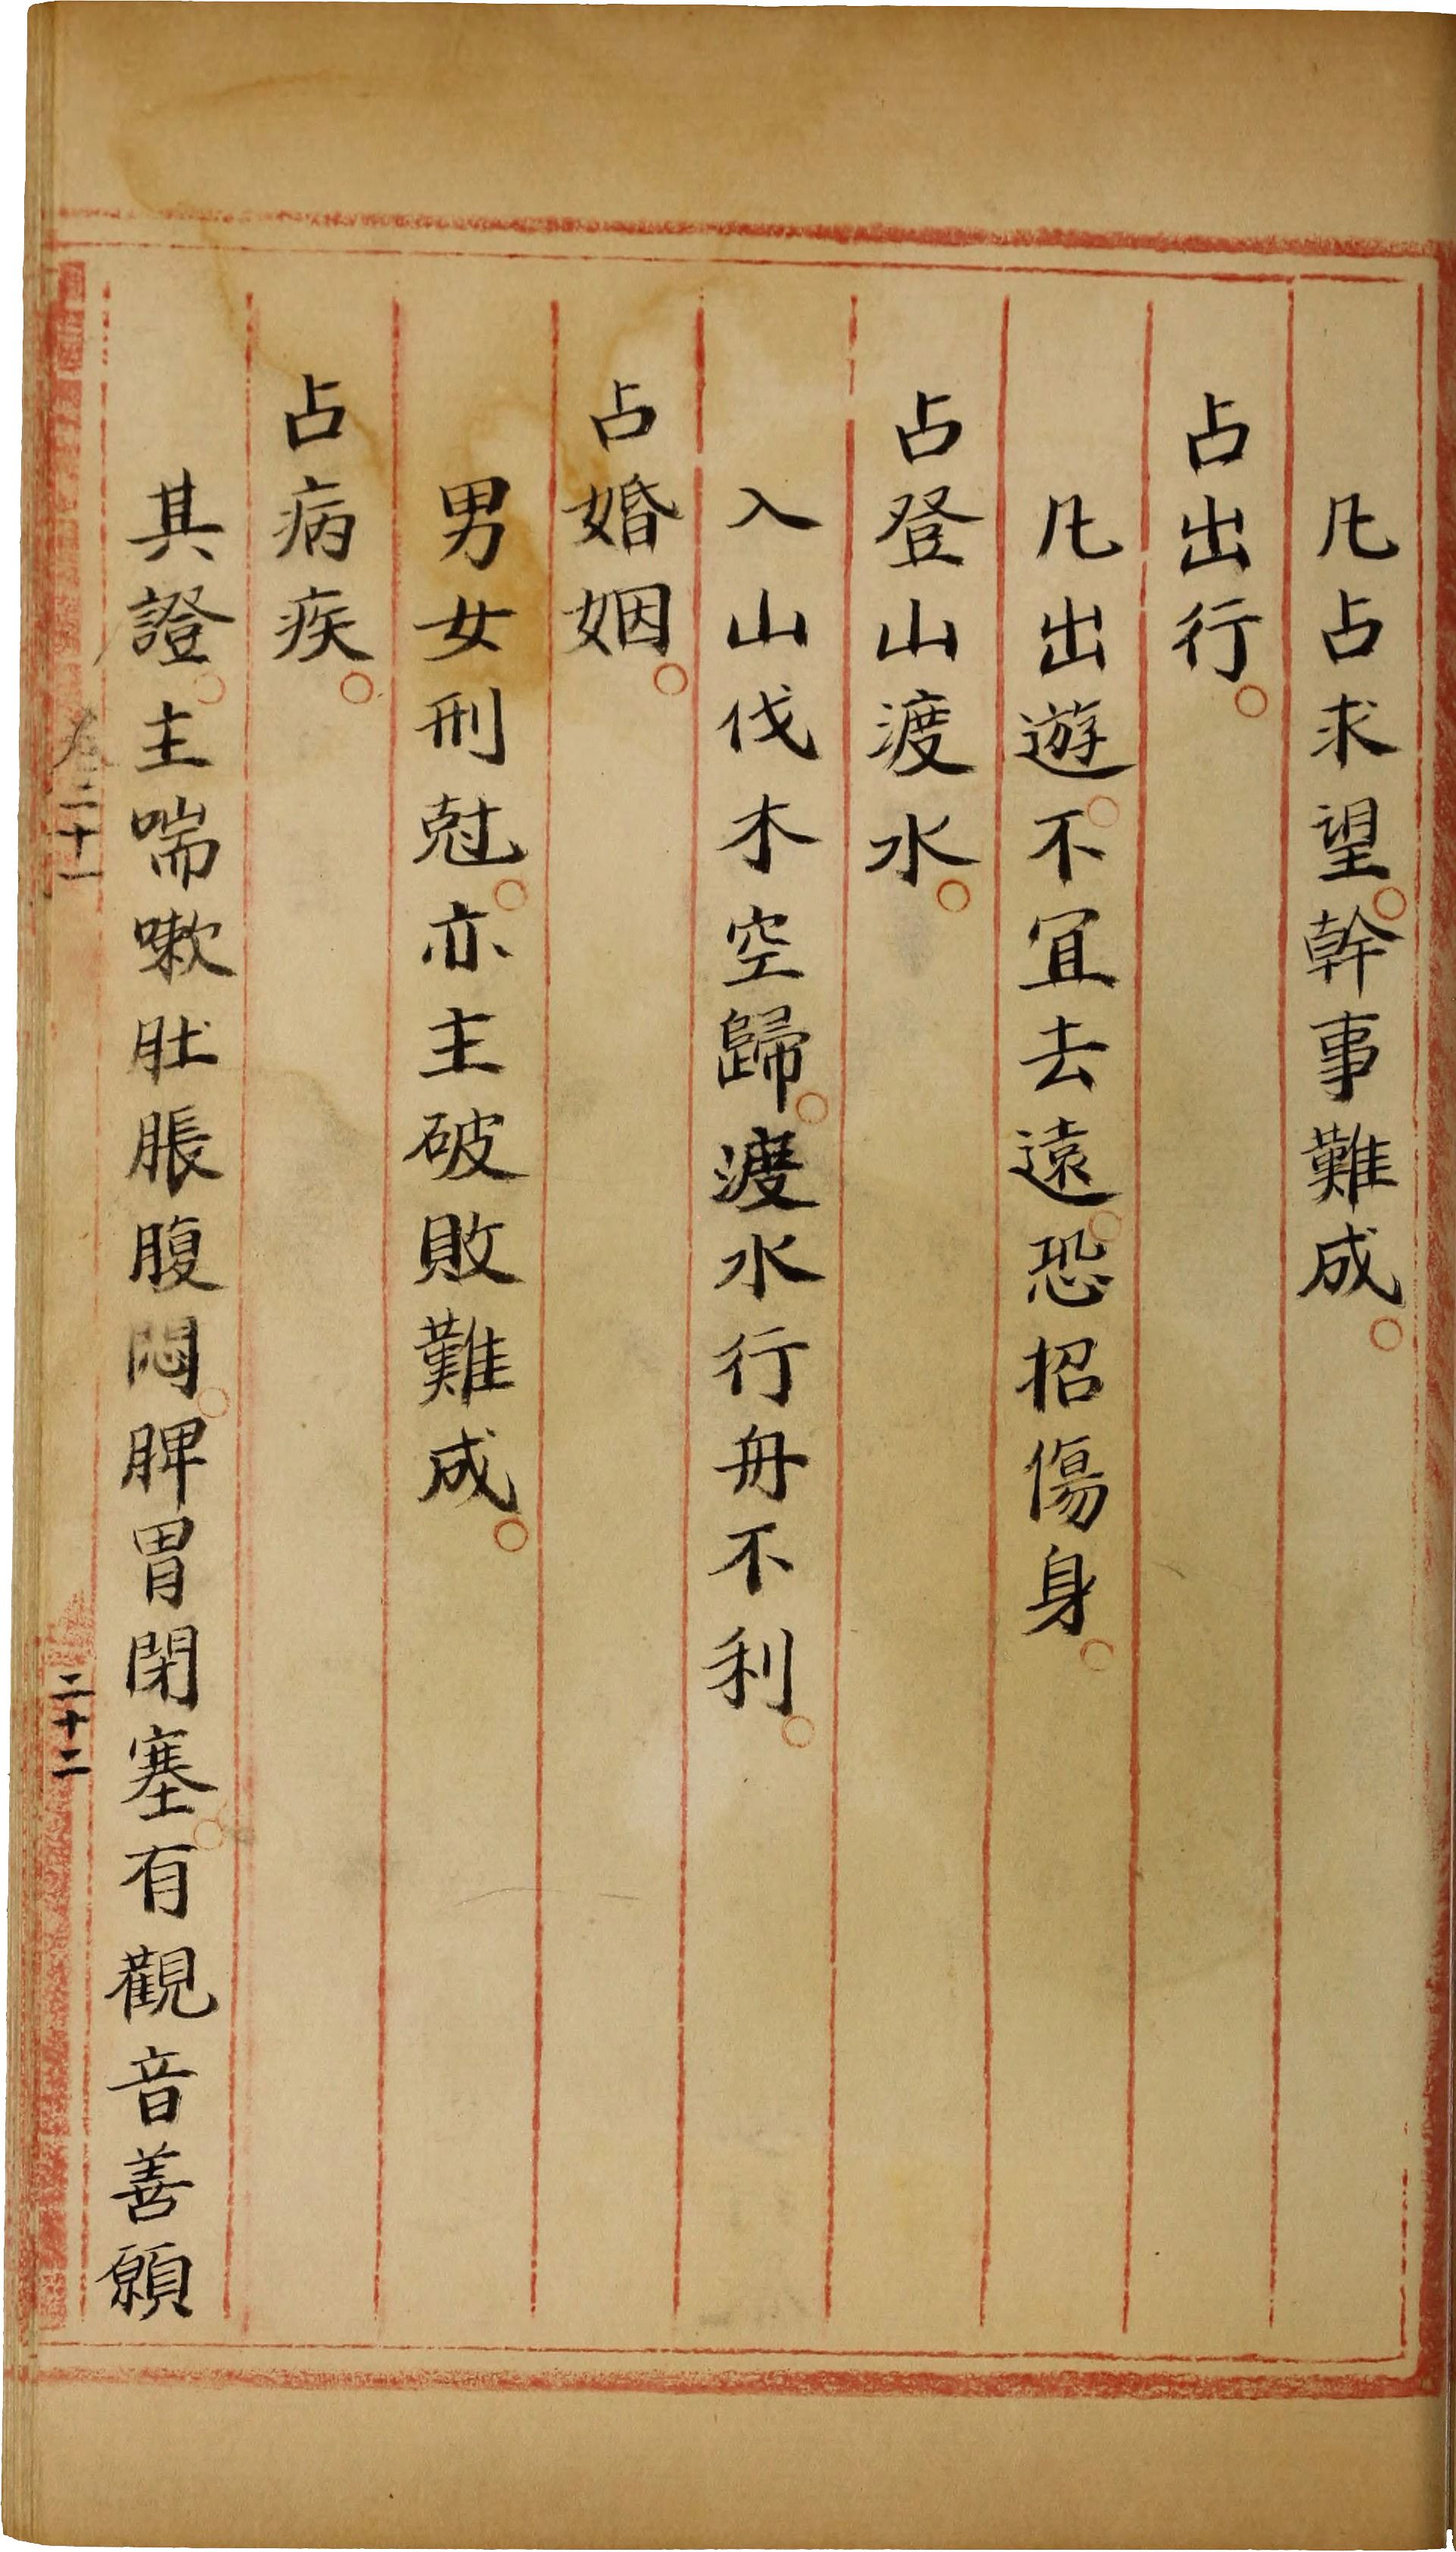 凢占求望。幹事難成。
占出行。
凢出遊。不冝去遠。恐招傷身。
占登山渡水。
入山伐木空歸。渡水行舟不利。
占婚姻。
男女刑尅。亦主破敗難成。
占病疾。
其證。主喘嗽肚脹腹悶。脾胃閉塞。有觀音善願
卷二十一
二十二